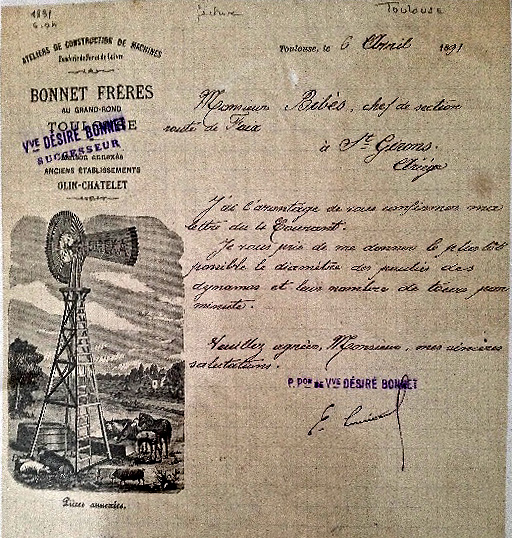 1891
6.04
facture
Toulouse
ATELIERS DE CONSTRUCTION DE MACHINES
Fonderie de Fer et de Cuivre
BONNET FRÈRES
AU GRAND-ROND
TOULOUSE
VVE DÉSIRÉ BONNET
SUCCESSEUR
Maison annexée
ANCIENS ÉTABLISSEMENTS
OLIN-CHATELET
EUREKA
Pièces annexées.
Toulouse, le 6 Avril 1891
Monsieur Bibès, chef de section
route de Foix
à St Girons.
Ariège
J'ai l'avantage de vous confirmer ma
lettre du 4 Courant.
Je vous prie de me donner le plus tôt
possible le diamètre des poulies des
dynamos et leur nombre de tours par
minute.
Veuillez agréer, Monsieur, mes sincères
salutations.
P. PON DE VVE DÉSIRÉ BONNET